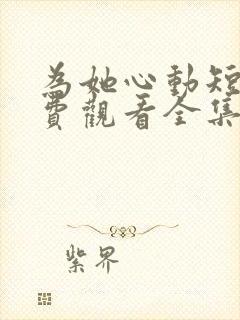 為她心動短
費觀看全集
紫界